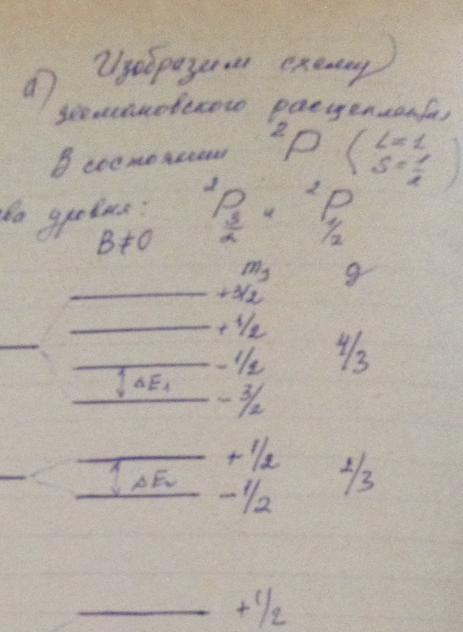 а) Изобразим схему
зеемановского расщепления
В состоянии ²P (L=1
S=1/2)
ва уровня: ²P 3/2 и ²P 1/2
B≠0
mJ g
+3/2
+1/2
-1/2 4/3
ΔE₁
-3/2
+1/2
ΔE₂ 2/3
-1/2
+1/2